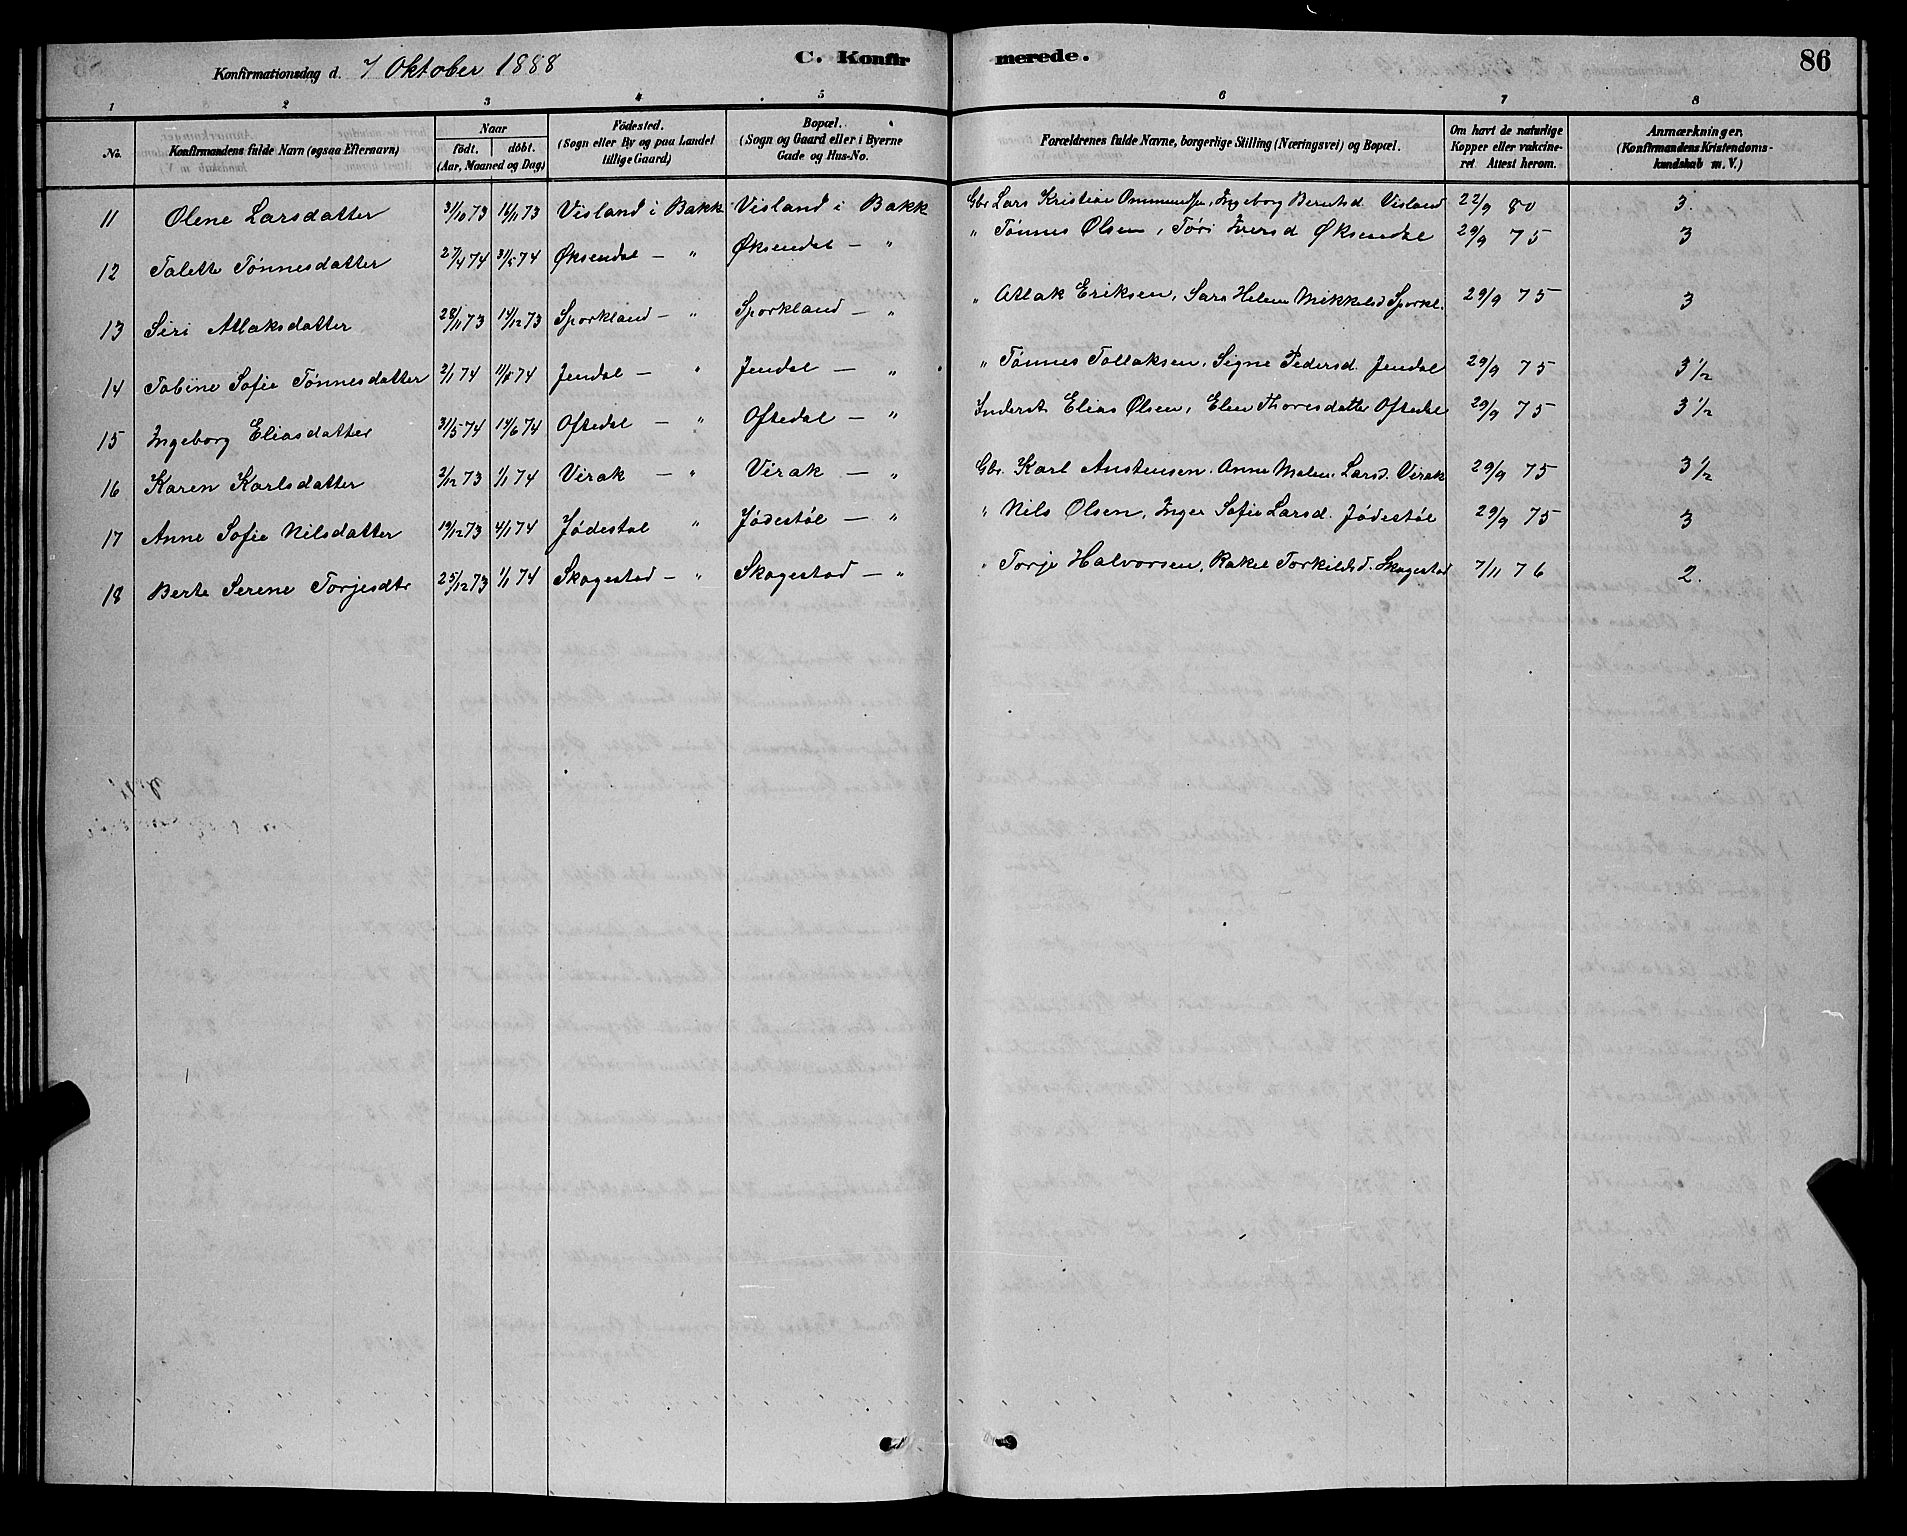 Konfirmationsdag d. 7 Oktober 1888 C. Konfirmerede. 86
1 2 3 4 5 6 7 8
No. Konfirmandens fulde Navn (ogsaa Efternavn) Naar födt. döbt. (Aar, Maaned og Dag) Födested. (Sogn eller By og paa Landet tillige Gaard) Bopæl. (Sogn og Gaard eller i Byerne Gade og Hus-No. Forældrenes fulde Navne, borgerlige Stilling (Næringsvei) og Bopæl. Om havt de naturlige Kopper eller vakcineret. Attest herom. Anmærkninger. (Konfirmandens Kristendomskundskab m. V.)
11 Olene Larsdatter 31/10 73 16/11 73 Visland i Bakk Visland i Bakk Gbr. Lars Kristian Ommundsen, Ingeborg Berntsd. Visland 22/9 80 3.
12 Talette Tönnesdatter 27/4 74 31/5 74 Øksendal — " Øksendal — " " Tönnes Olsen, Töri Iversd Øksendal 29/9 75 3
13 Siri Atlaksdatter 28/11 73 14/12 73 Sporkland — " Sporkland — " " Atlak Eriksen, Sara Helene Mikkelsd Sporkl. 29/9 75 3
14 Tobine Sofie Tönnesdatter 2/1 74 74 Jendal — " Jendal — " " Tönnes Tollaksen, Signe Pedersd. Jendal 29/9 75 3 1/2
15 Ingeborg Eliasdatter 31/5 74 14/6 74 Oftedal — " Oftedal — " Inderst. Elias Olsen, Elen Thoresdatter Oftedal 29/9 75 3 1/2
16 Karen Karlsdatter 2/12 73 1/1 74 Virak — " Virak — " Gbr. Karl Anstensen, Anne Malene Larsd. Virak 29/9 75 3 1/2
17 Anne Sofie Nilsdatter 19/12 73 4/1 74 Jødestøl " Jødestøl — " " Nils Olsen, Inger Sofie Larsd. Jødestøl 29/9 75 3
18 Berte Serene Torjesdtr 25/12 73 1/1 74 Skogestad — " Skogestad — " " Torje Halvorsen, Rakel Torkildsd. Skogestad 7/11 76 2.